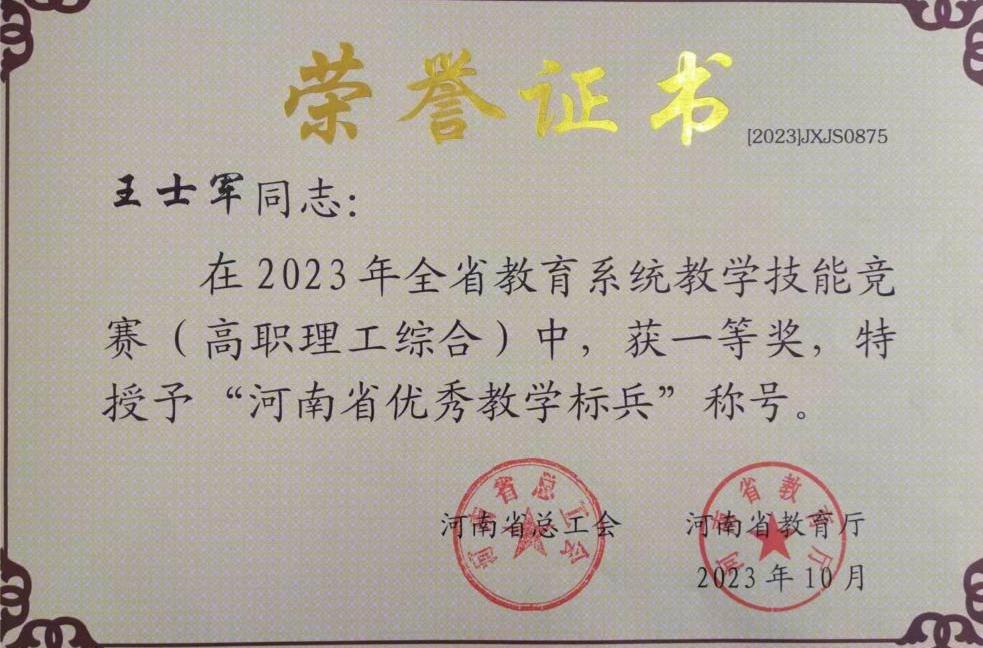 荣誉证书
[2023]JXJS0875
王士军同志：
在2023年全省教育系统教学技能竞
赛（高职理工综合）中，获一等奖，特
授予“河南省优秀教学标兵”称号。
河南省总工会 河南省教育厅
2023年10月
河南省总工会
河南省教育厅